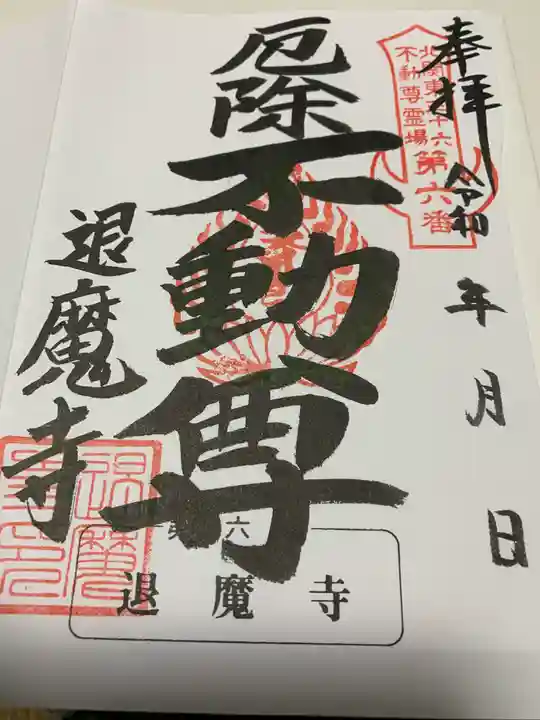 奉拝
令和 年 月 日
北関東三十六
不動尊霊場
第六番
厄除
不動尊
退魔寺
第六
退魔寺